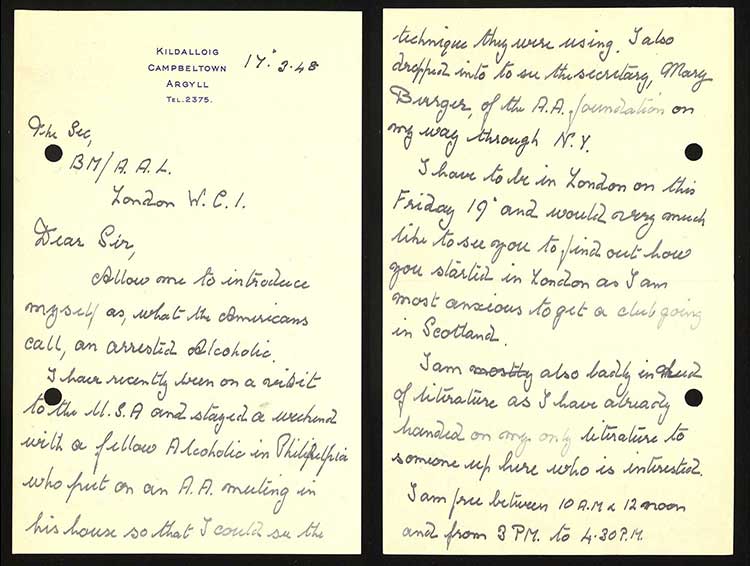 KILDALLOIG
CAMPBELTOWN
ARGYLL
TEL. 2375.
17° 3.48
The Sec,
BM/A.A.L.
London W.C.1.
Dear Sir,
Allow me to introduce
myself as, what the Americans
call, an arrested Alcoholic.
I have recently been on a visit
to the U.S.A and stayed a weekend
with a fellow Alcoholic in Philpelpia
who put on an A.A. meeting in
his house so that I could see the
technique they were using. I also
dropped into to see the secretary, Mary
Burger, of the A.A. foundation on
my way through N.Y.
I have to be in London on this
Friday 19° and would very much
like to see you to find out how
you started in London as I am
most anxious to get a club going
in Scotland.
I am mostly also badly in need
of literature as I have already
handed on my only literature to
someone up here who is interested.
I am free between 10 A.M & 12 noon
and from 3 PM. to 4.30 P.M.